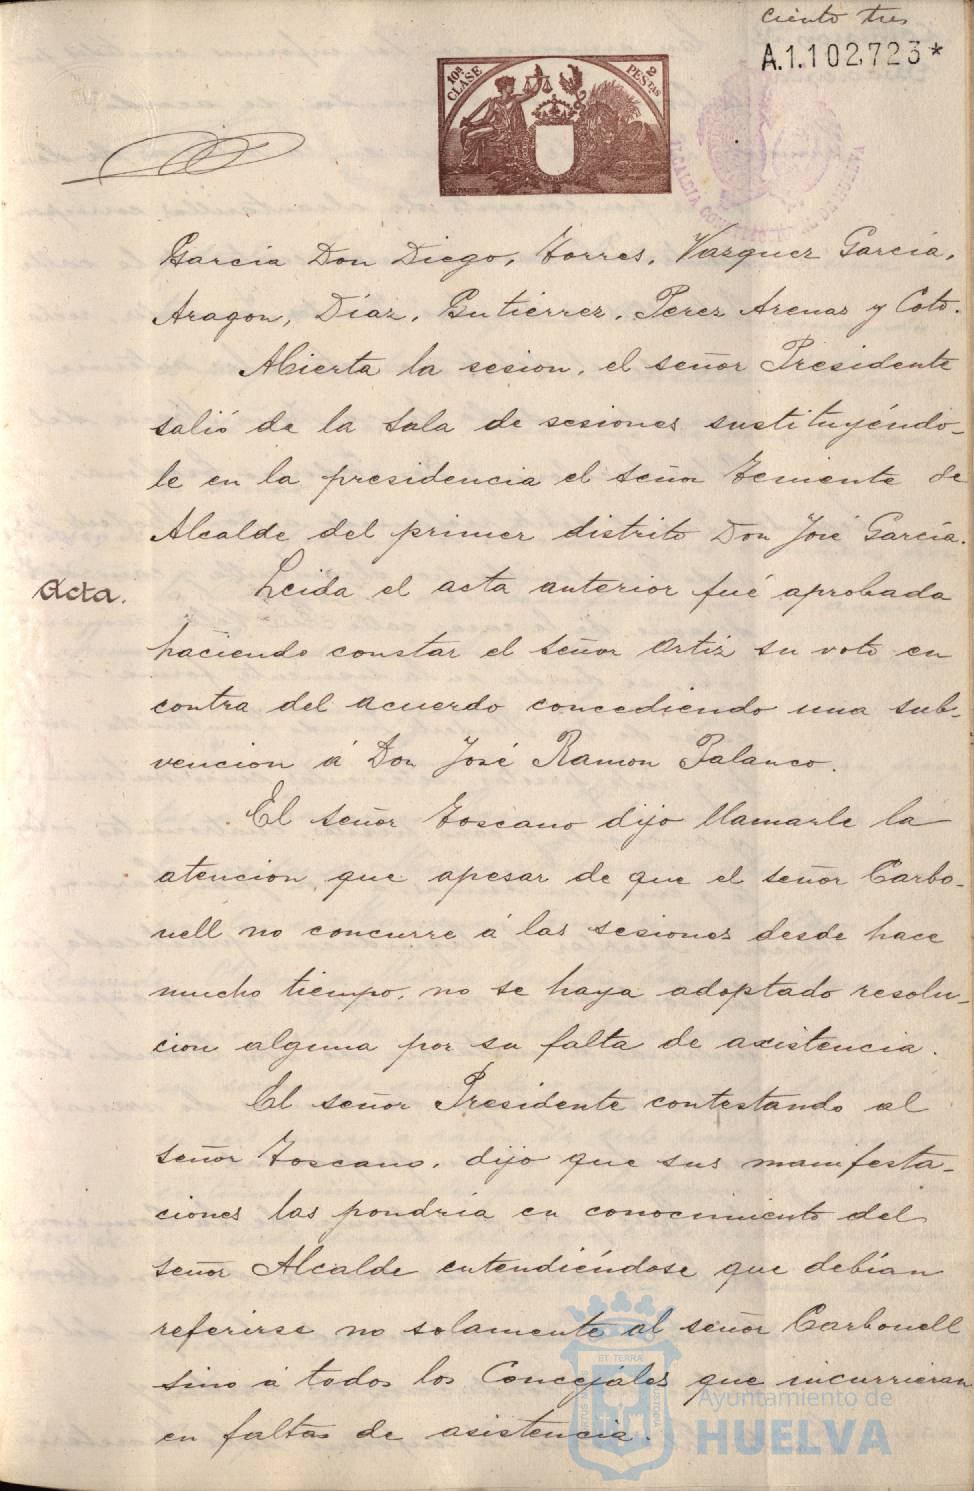 ciento tres
A.1.102,723*
10ª CLASE
2 PESTAS
ALCALDIA CONSTITUCIONAL DE HUELVA
Garcia Don Diego, Torres, Vazquez Garcia,
Aragon, Diaz, Gutierrez, Perez Arenas y Coto.
Abierta la sesion, el señor Presidente
salió de la sala de sesiones sustituyéndo-
le en la presidencia el señor Teniente de
Alcalde del primer distrito Don José García.
Acta.
Leida el acta anterior fué aprobada
haciendo constar el señor Ortiz su voto en
contra del acuerdo concediendo una sub-
vencion á Don José Ramon Palanco.
El señor Toscano dijo llamarle la
atencion que apesar de que el señor Carbo-
nell no concurre á las sesiones desde hace
mucho tiempo, no se haya adoptado resolu-
cion alguna por su falta de axistencia.
El señor Presidente contestando al
señor Toscano, dijo que sus manifesta-
ciones las pondría en conocimiento del
señor Alcalde entendiéndose que debían
referirse no solamente al señor Carbonell
sino á todos los Concejales que incurrieran
en faltas de asistencia.
Ayuntamiento de
HUELVA